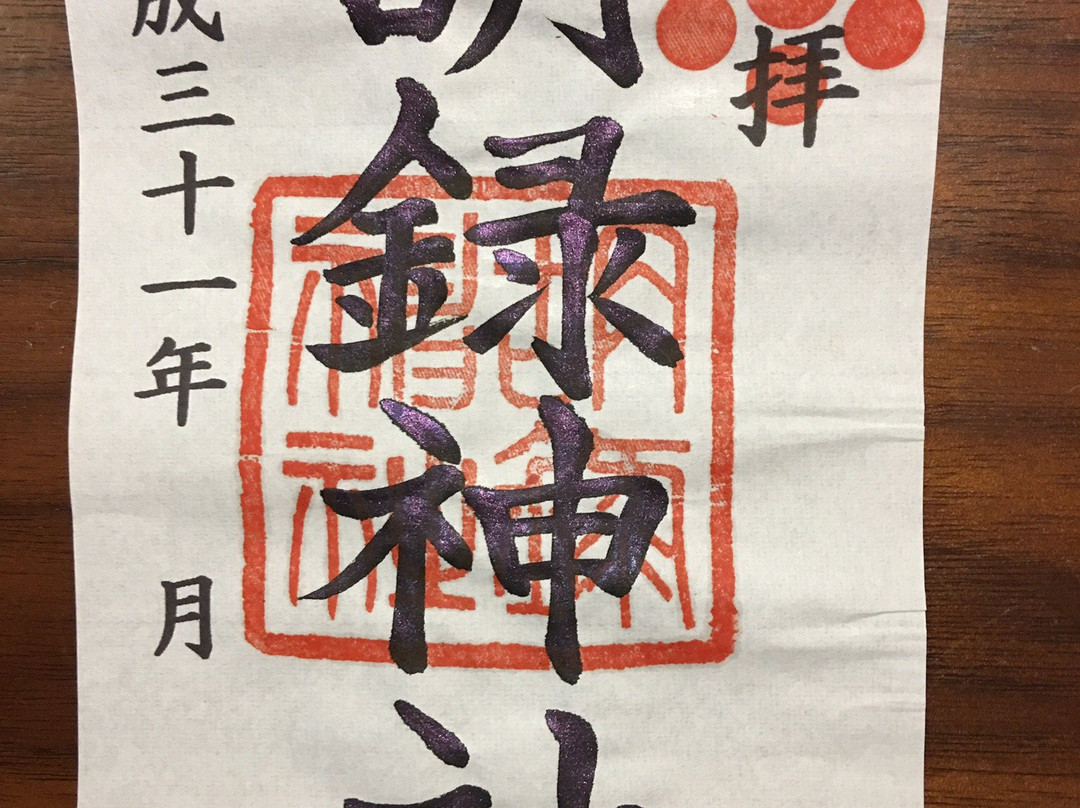 拝
胡録神社
成三十一年 月